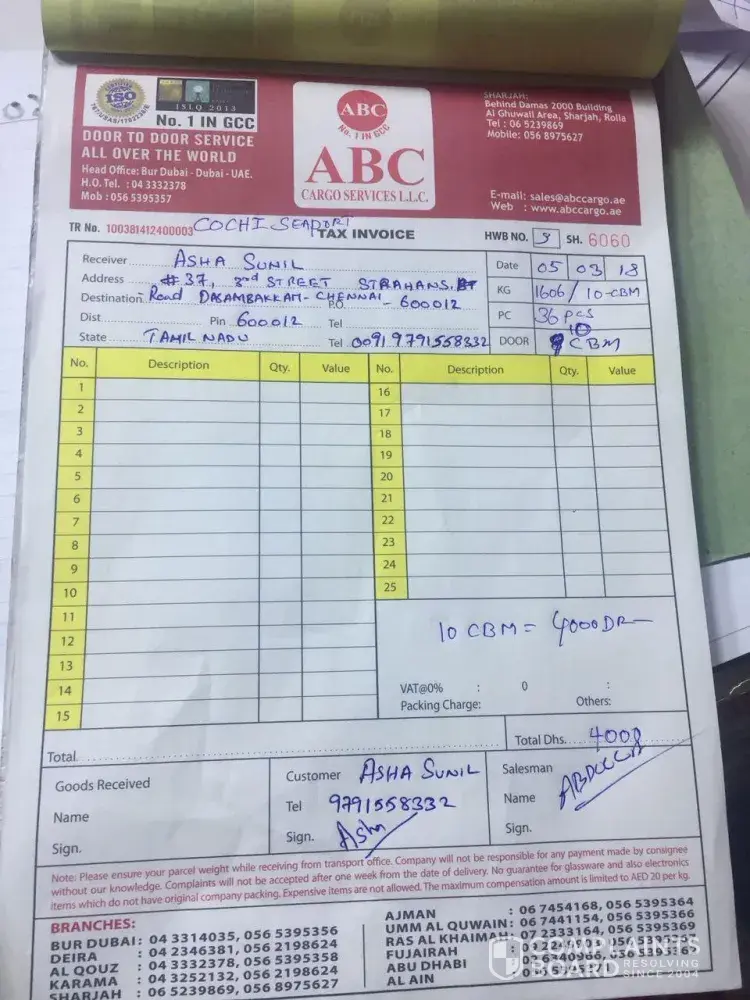 ISO
ISLQ 2013
No. 1 IN GCC
DOOR TO DOOR SERVICE
ALL OVER THE WORLD
Head Office: Bur Dubai - Dubai - UAE.
H.O. Tel. : 04 3332378
Mob : 056 5395357
ABC
No. 1 IN GCC
ABC
CARGO SERVICES L.L.C.
SHARJAH:
Behind Damas 2000 Building
Al Ghuwair Area, Sharjah, Rolla
Tel : 06 5239869
Mobile: 056 8975627
E-mail: sales@abccargo.ae
Web : www.abccargo.ae
TR No. 100381412400003 COCHI SEAPORT
TAX INVOICE
HWB NO. 9 SH. 6060
Receiver ASHA SUNIL
Address #37, 3rd STREET STRAHANS
Destination Road DASAMBAKKAM - CHENNAI P.O. - 600012
Dist Pin 600012 Tel
State TAMIL NADU Tel 0091 9791558332
Date 05 03 18
KG 1606 / 10-CBM
PC 36 pcs
DOOR 10 CBM
No. Description Qty. Value No. Description Qty. Value
1 16
2 17
3 18
4 19
5 20
6 21
7 22
8 23
9 24
10 25
11
12
13
14
15
10 CBM = 4000 DR
VAT@0% : 0 :
Packing Charge: Others:
Total
Total Dhs. 4000
Goods Received
Name
Sign.
Customer ASHA SUNIL
Tel 9791558332
Sign. Asha
Salesman
Name
Sign.
Note: Please ensure your parcel weight while receiving from transport office. Company will not be responsible for any payment made by consignee
without our knowledge. Complaints will not be accepted after one week from the date of delivery. No guarantee for glassware and also electronics
items which do not have original company packing. Expensive items are not allowed. The maximum compensation amount is limited to AED 20 per kg.
BRANCHES:
BUR DUBAI : 04 3314035, 056 5395356
DEIRA : 04 2346381, 056 2198624
AL QOUZ : 04 3332378, 056 5395358
KARAMA : 04 3252132, 056 2198624
SHARJAH : 06 5239869, 056 8975627
AJMAN : 06 7454168, 056 5395364
UMM AL QUWAIN : 06 7441154, 056 5395366
RAS AL KHAIMAH : 07 2333164, 056
FUJAIRAH
ABU DHABI
AL AIN
COMPLAINTS
BOARD
RESOLVING
SINCE 2004